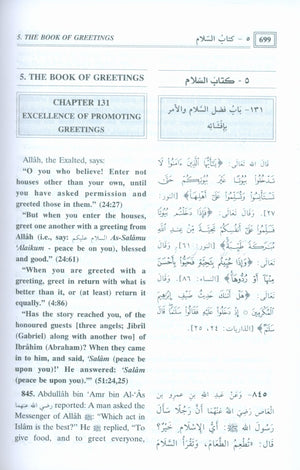 5. THE BOOK OF GREETINGS
699
٥ - كتاب السلام
5. THE BOOK OF GREETINGS
CHAPTER 131
EXCELLENCE OF PROMOTING
GREETINGS
Allâh, the Exalted, says:
"O you who believe! Enter not
houses other than your own, until
you have asked permission and
greeted those in them." (24:27)
"But when you enter the houses,
greet one another with a greeting from
Allâh (i.e., say: السلام عليكم As-Salâmu
'Alaikum - peace be on you), blessed
and good." (24:61)
"When you are greeted with a
greeting, greet in return with what is
better than it, or (at least) return it
equally." (4:86)
"Has the story reached you, of the
honoured guests [three angels; Jibrîl
(Gabriel) along with another two] of
Ibrâhim (Abraham)? When they came
in to him, and said, 'Salâm (peace be
upon you)!' He answered; 'Salâm
(peace be upon you).'" (51:24,25)
845. Abdullâh bin 'Amr bin Al-'Âs
رضي الله عنهما reported: A man asked the
Messenger of Allâh ﷺ: "Which act in
Islâm is the best?" He ﷺ replied, "To
give food, and to greet everyone,
٥ - كتاب السلام
١٣١- بَابُ فَضْلِ السَّلَامِ وَالأَمْرِ
بِإِفْشَائِهِ
قَالَ اللهُ تَعَالَى: ﴿يَٰٓأَيُّهَا ٱلَّذِينَ ءَامَنُوا۟ لَا
تَدْخُلُوا۟ بُيُوتًا غَيْرَ بُيُوتِكُمْ حَتَّىٰ
تَسْتَأْنِسُوا۟ وَتُسَلِّمُوا۟ عَلَىٰٓ أَهْلِهَا﴾ [النور:
٢٧]. وَقَالَ تَعَالَى: ﴿فَإِذَا دَخَلْتُم بُيُوتًا
فَسَلِّمُوا۟ عَلَىٰٓ أَنفُسِكُمْ تَحِيَّةً مِّنْ عِندِ ٱللَّهِ
مُبَٰرَكَةً طَيِّبَةً﴾ [النور: ٦١]. وَقَالَ
تَعَالَى: ﴿وَإِذَا حُيِّيتُم بِتَحِيَّةٍ فَحَيُّوا۟ بِأَحْسَنَ
مِنْهَآ أَوْ رُدُّوهَآ﴾ [النساء: ٨٦]. وَقَالَ
تَعَالَى: ﴿هَلْ أَتَىٰكَ حَدِيثُ ضَيْفِ إِبْرَٰهِيمَ
ٱلْمُكْرَمِينَ ۝ إِذْ دَخَلُوا۟ عَلَيْهِ فَقَالُوا۟ سَلَٰمًا قَالَ
سَلَٰمٌ﴾ [الذاريات: ٢٤، ٢٥].
٨٤٥- وَعَنْ عَبْدِ اللهِ بْنِ عَمْرِو بْنِ
الْعَاصِ رَضِيَ اللهُ عَنْهُمَا أَنَّ رَجُلًا سَأَلَ
رَسُولَ اللهِ ﷺ: أَيُّ الْإِسْلَامِ خَيْرٌ؟
قَالَ: «تُطْعِمُ الطَّعَامَ، وَتَقْرَأُ السَّلَامَ